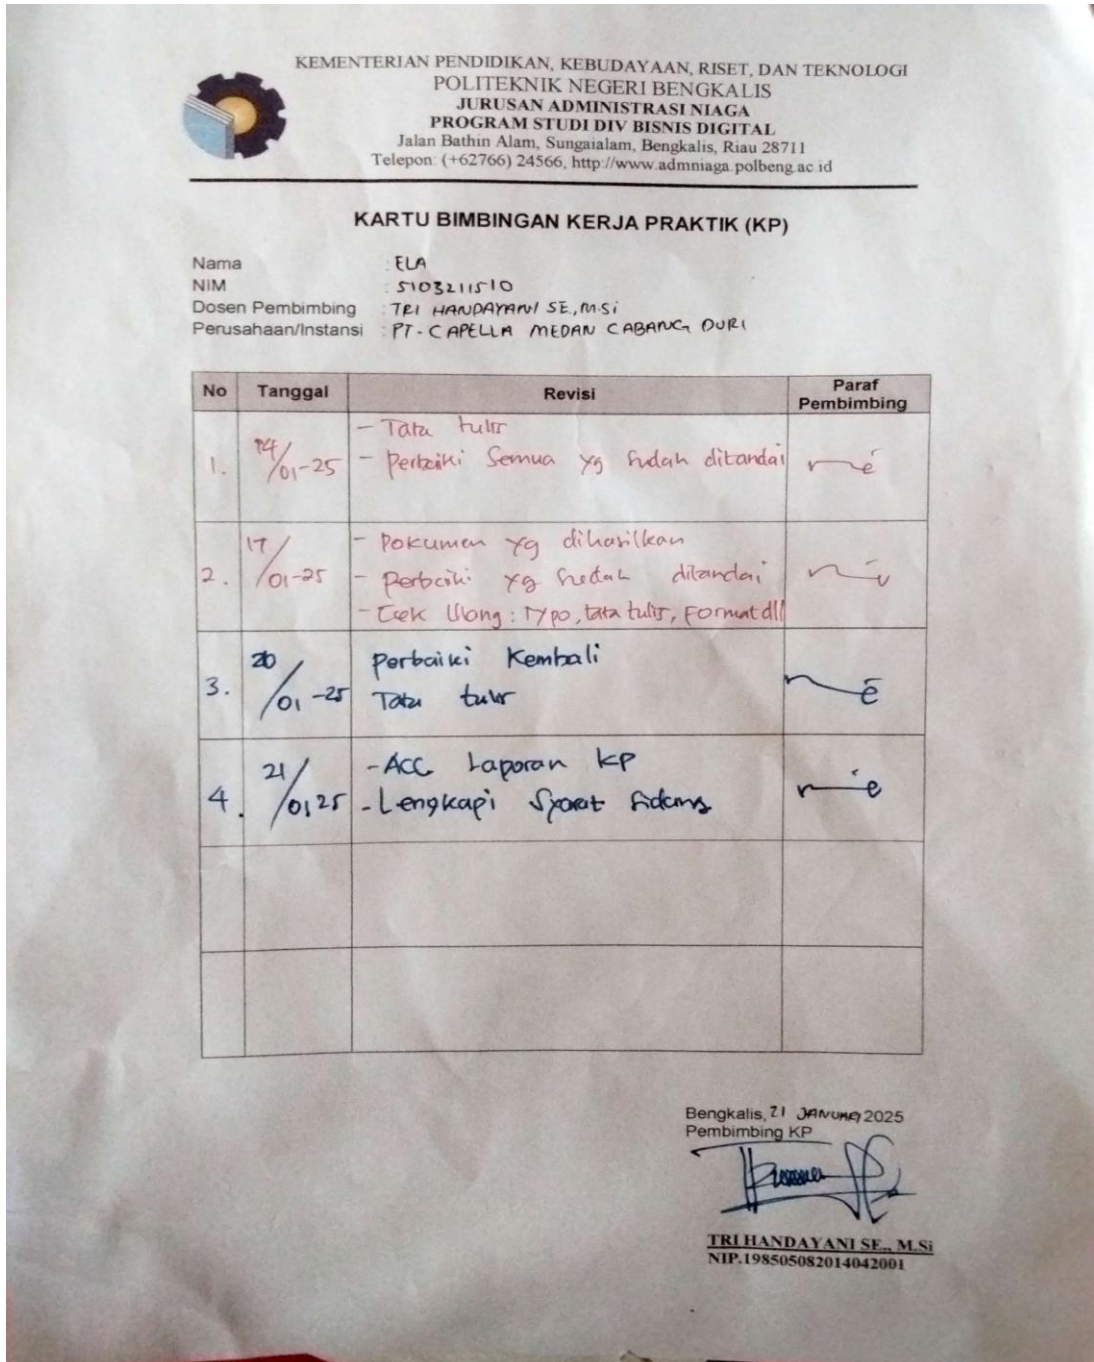 KEMENTERIAN PENDIDIKAN, KEBUDAYAAN, RISET, DAN TEKNOLOGI
POLITEKNIK NEGERI BENGKALIS
JURUSAN ADMINISTRASI NIAGA
PROGRAM STUDI DIV BISNIS DIGITAL
Jalan Bathin Alam, Sungaialam, Bengkalis, Riau 28711
Telepon: (+62766) 24566, http://www.admniaga.polbeng.ac.id
KARTU BIMBINGAN KERJA PRAKTIK (KP)
Nama : ELA
NIM : 5103211510
Dosen Pembimbing : TRI HANDAYANI SE., M.Si
Perusahaan/Instansi : PT. CAPELLA MEDAN CABANG DURI
No Tanggal Revisi Paraf Pembimbing
1. 14/01-25 - Tata tulis
- Perbaiki Semua yg sudah ditandai
2. 17/01-25 - Dokumen yg dihasilkan
- Perbaiki yg sudah ditandai
- Cek Ulang : Typo, tata tulis, Format dll
3. 20/01-25 Perbaiki Kembali
Tata tulis
4. 21/01 25 - ACC Laporan KP
- Lengkapi Syarat Sidang
Bengkalis, 21 JANUARI 2025
Pembimbing KP
TRI HANDAYANI SE., M.Si
NIP.198505082014042001